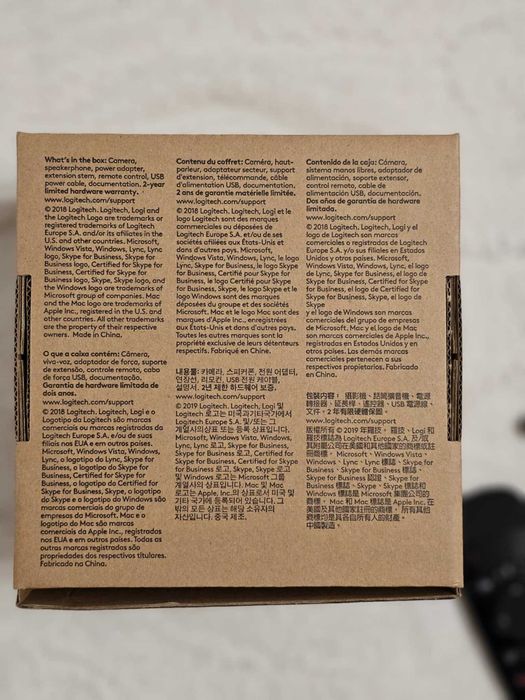 What's in the box: Camera,
speakerphone, power adapter,
extension stem, remote control, USB
power cable, documentation. 2-year
limited hardware warranty.
www.logitech.com/support
© 2018 Logitech. Logitech, Logi and
the Logitech Logo are trademarks or
registered trademarks of Logitech
Europe S.A. and/or its affiliates in the
U.S. and other countries. Microsoft,
Windows Vista, Windows, Lync, Lync
logo, Skype for Business, Skype for
Business logo, Certified for Skype for
Business, Certified for Skype for
Business logo, Skype, Skype logo, and
the Windows logo are trademarks of
Microsoft group of companies. Mac
and the Mac logo are trademarks of
Apple Inc., registered in the U.S. and
other countries. All other trademarks
are the property of their respective
owners. Made in China.
O que a caixa contém: Câmera,
viva-voz, adaptador de força, suporte
de extensão, controle remoto, cabo
de força USB, documentação.
Garantia de hardware limitada de
dois anos.
www.logitech.com/support
© 2018 Logitech. Logitech, Logi e o
Logotipo da Logitech são marcas
comerciais ou marcas registradas
da Logitech Europe S.A. e/ou de suas
filiais nos EUA e em outros países.
Microsoft, Windows Vista, Windows,
Lync, o logotipo do Lync, Skype for
Business, o logotipo do Skype for
Business, Certified for Skype for
Business, o logotipo do Certified for
Skype for Business, Skype, o logotipo
do Skype e o logotipo do Windows são
marcas comerciais do grupo de
empresas do Microsoft. Mac e o
logotipo do Mac são marcas
comerciais da Apple Inc., registrados
nos EUA e em outros países. Todas as
outras marcas registradas são
propriedades dos respectivos titulares.
Fabricado na China.
Contenu du coffret: Caméra, haut-
parleur, adaptateur secteur, support
d'extension, télécommande, câble
d'alimentation USB, documentation.
2 ans de garantie matérielle limitée.
www.logitech.com/support
© 2018 Logitech. Logitech, Logi et le
logo Logitech sont des marques
commerciales ou déposées de
Logitech Europe S.A. et/ou de ses
sociétés affiliées aux États-Unis et
dans d'autres pays. Microsoft,
Windows Vista, Windows, Lync, le logo
Lync, Skype for Business, le logo Skype
for Business, Certifié pour Skype for
Business, le logo Certifié pour Skype
for Business, Skype, le logo Skype et le
logo Windows sont des marques
déposées du groupe et des sociétés
Microsoft. Mac et le logo Mac sont des
marques d'Apple Inc., enregistrées
aux États-Unis et dans d'autres pays.
Toutes les autres marques sont la
propriété exclusive de leurs détenteurs
respectifs. Fabriqué en Chine.
내용물: 카메라, 스피커폰, 전원 어댑터,
연장선, 리모컨, USB 전원 케이블,
설명서. 2년 제한 하드웨어 보증.
www.logitech.com/support
© 2019 Logitech. Logitech, Logi 및
Logitech 로고는 미국과 기타 국가에서
Logitech Europe S.A. 및/또는 그
계열사의 상표 또는 등록 상표입니다.
Microsoft, Windows Vista, Windows,
Lync, Lync 로고, Skype for Business,
Skype for Business 로고, Certified
for Skype for Business, Certified for Skype
for Business 로고, Skype, Skype 로고
및 Windows 로고는 Microsoft 그룹
계열사의 상표입니다. Mac 및 Mac
로고는 Apple Inc.의 상표로서 미국 및
기타 국가에 등록되어 있습니다. 그
밖의 모든 상표는 해당 소유자의
자산입니다. 중국 제조.
Contenido de la caja: Cámara,
sistema manos libres, adaptador de
alimentación, soporte extensor,
control remoto, cable de
alimentación USB, documentación.
Dos años de garantía de hardware
limitada.
www.logitech.com/support
© 2018 Logitech. Logitech, Logi y el
logo de Logitech son marcas
comerciales o registradas de Logitech
Europe S.A. y/o sus filiales en Estados
Unidos y en otros países. Microsoft,
Windows Vista, Windows, Lync, el logo
de Lync, Skype for Business, el logo de
Skype for Business, Certified for Skype
for Business, el logo de Certified for
Skype for Business, Skype, el logo de
Skype
y el logo de Windows son marcas
comerciales del grupo de empresas
de Microsoft. Mac y el logo de Mac
son marcas comerciales de Apple Inc.,
registradas en Estados Unidos y en
otros países. Las demás marcas
comerciales pertenecen a sus
respectivos propietarios. Fabricado
en China.
包裝內容: 攝影機、話筒擴音機、電源
轉接器、延長桿、遙控器、USB 電源線、
文件。2 年有限硬體保固。
www.logitech.com/support
版權所有 © 2019 年羅技。羅技、Logi 和
羅技標誌為 Logitech Europe S.A. 及/或
其附屬公司在美國和其他國家的商標或註
冊商標。Microsoft、Windows Vista、
Windows、Lync、Lync 標誌、Skype for
Business、Skype for Business 標誌、
Skype for Business 認證、Skype for
Business 標誌、Skype、Skype 標誌和
Windows 標誌是 Microsoft 集團公司的
商標。Mac 和 Mac 標誌是 Apple Inc. 在
美國及其他國家註冊的商標。所有其他
商標均是其各自所有人的財產。
中國製造。